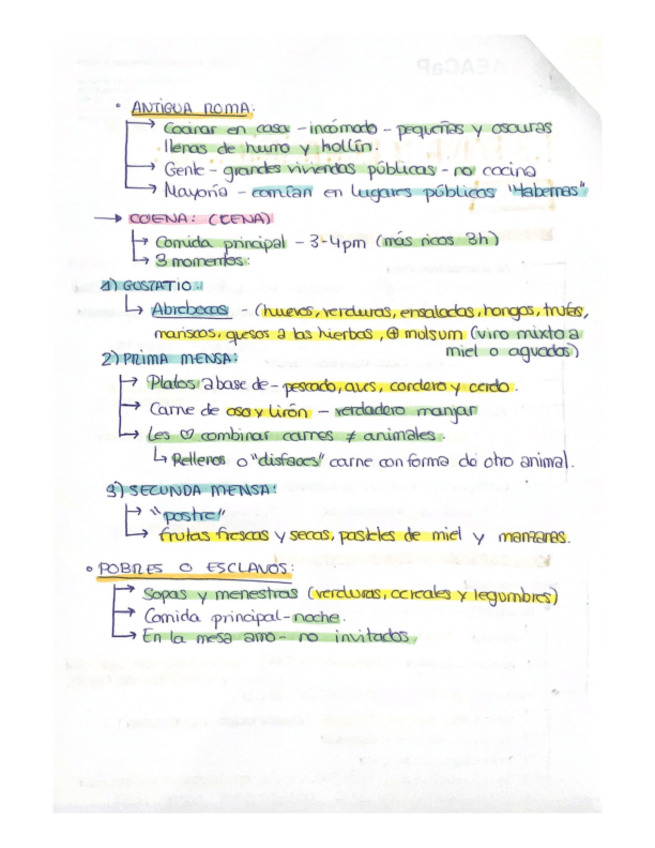 • ANTIGUA ROMA:
→ Cocinar en casa - incómodo - pequeñas y oscuras
llenas de humo y hollín.
→ Gente - grandes viviendas públicas - no cocina
→ Mayoría - comían en lugares públicos "tabernas"
→ COENA: (CENA)
→ Comida principal - 3-4pm (más ricos 3h)
→ 3 momentos:
1) GUSTATIO:
→ Abrebocas - (huevos, verduras, ensaladas, hongos, trufas,
mariscos, quesos a las hierbas, ⊕ mulsum (vino mixto a
miel o aguados)
2) PRIMA MENSA:
→ Platos a base de - pescado, aves, cordero y cerdo.
→ Carne de oso y lirón - verdadero manjar
→ Les ♡ combinar carnes ≠ animales.
↳ Rellenos o "disfraces" carne con forma de otro animal.
3) SECUNDA MENSA:
→ "postre"
→ frutas frescas y secas, pasteles de miel y manzanas.
• POBRES O ESCLAVOS:
→ Sopas y menestras (verduras, cereales y legumbres)
→ Comida principal - noche.
→ En la mesa amo - no invitados.